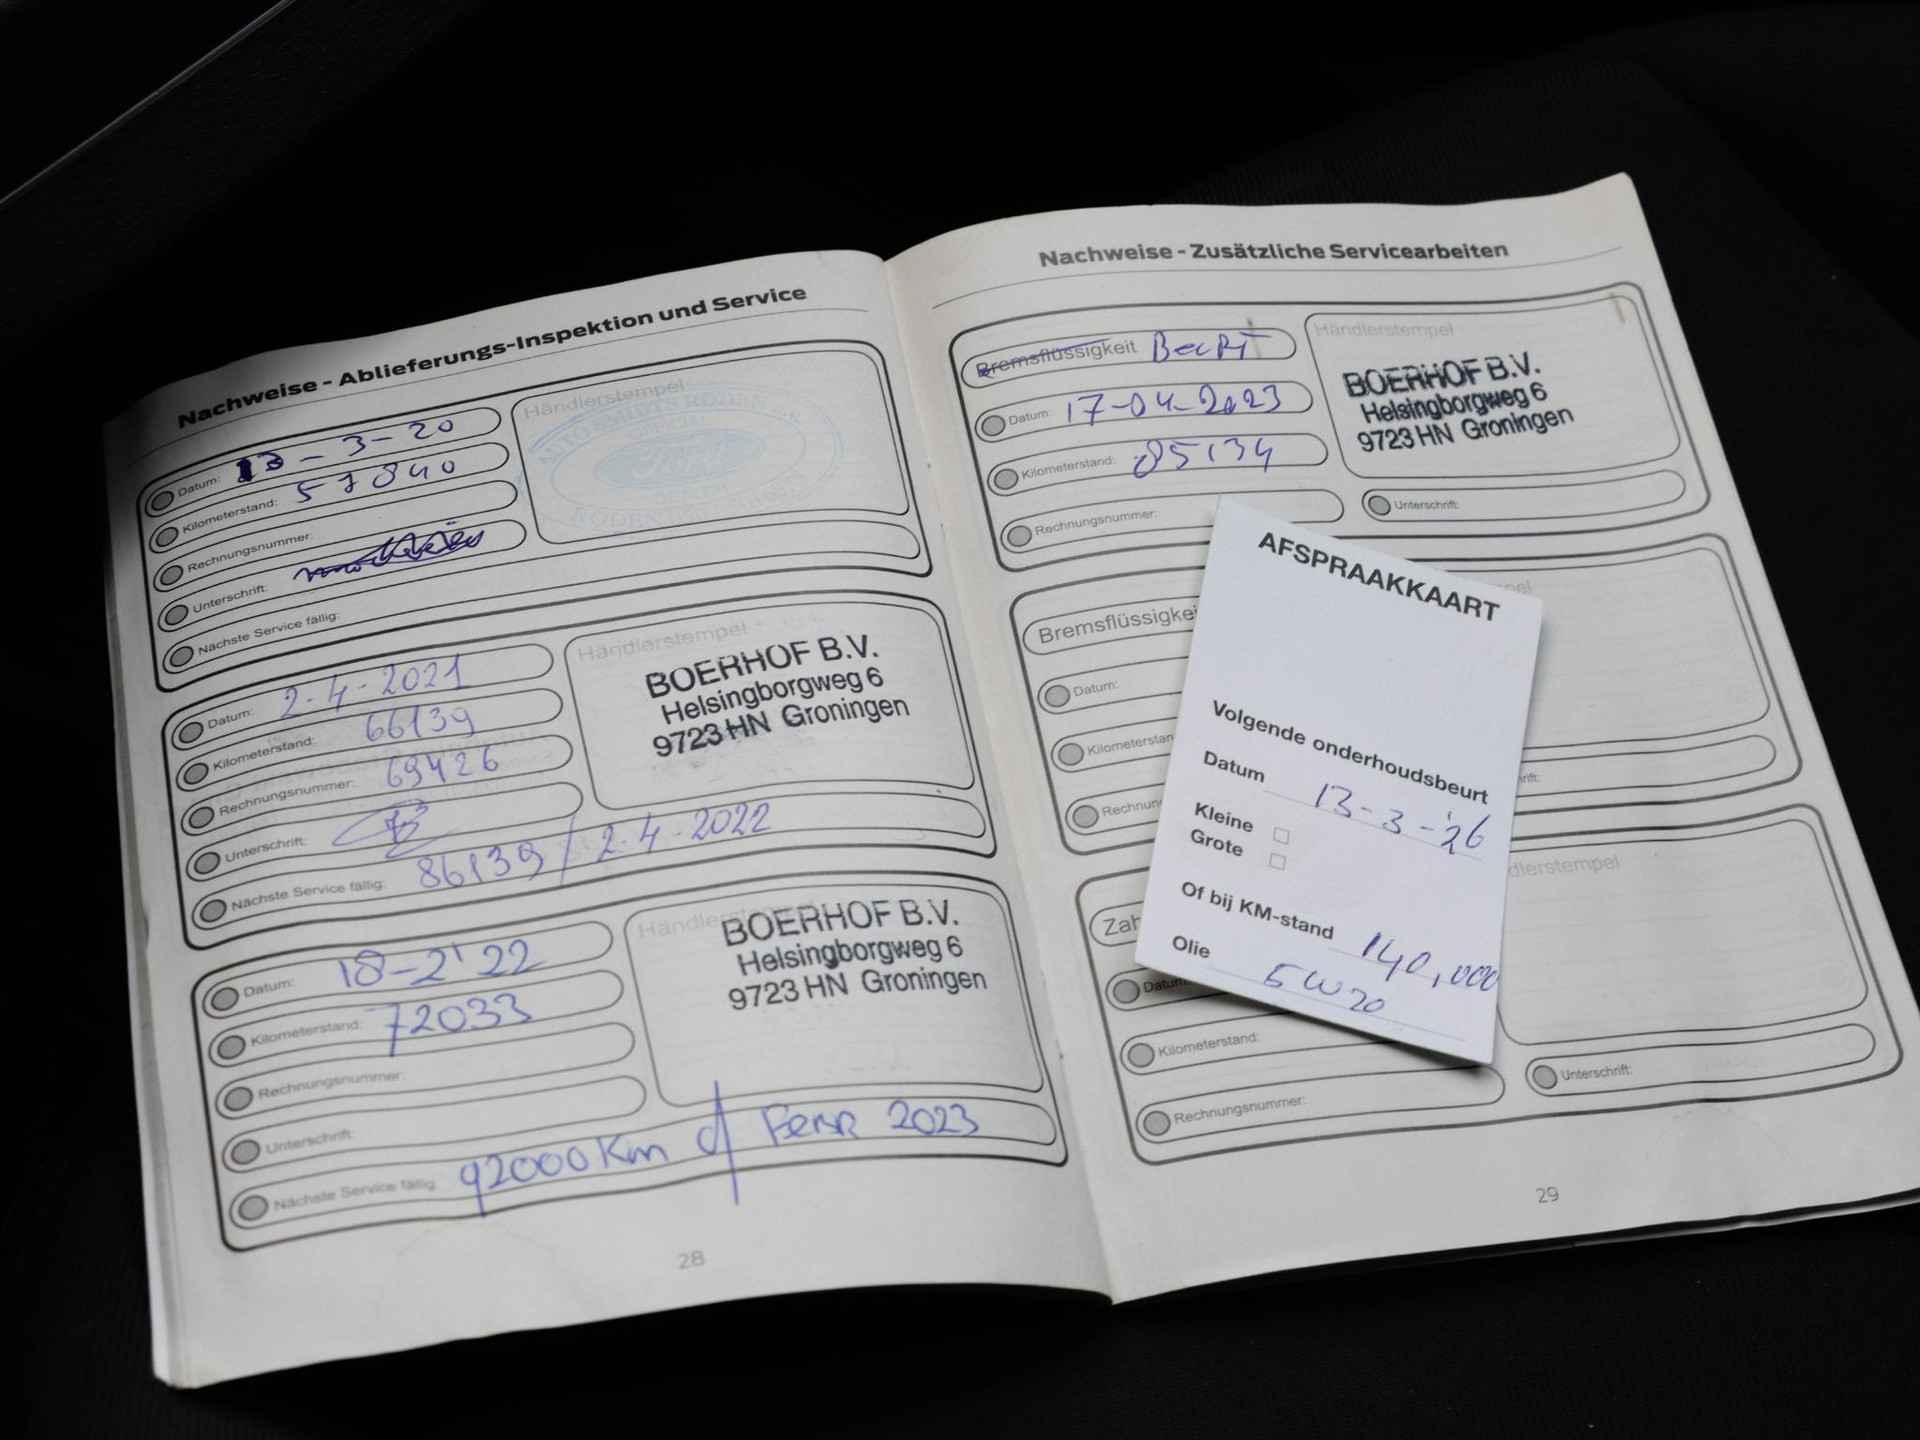 Nachweise - Ablieferungs-Inspektion und Service
Datum: 13-3-20
Kilometerstand: 57840
Rechnungsnummer:
Unterschrift:
Nächste Service fällig:
Händlerstempel
RODEN
Ford
RODEN
Datum: 2-4-2021
Kilometerstand: 66139
Rechnungsnummer: 69426
Unterschrift:
Nächste Service fällig: 86139 / 2-4-2022
Händlerstempel
BOERHOF B.V.
Helsingborgweg 6
9723 HN Groningen
Datum: 18-2'22
Kilometerstand: 72033
Rechnungsnummer:
Unterschrift:
Nächste Service fällig: 92000 Km of 2023
Händlerstempel
BOERHOF B.V.
Helsingborgweg 6
9723 HN Groningen
28
Nachweise - Zusätzliche Servicearbeiten
Bremsflüssigkeit Beurt
Datum: 17-04-2023
Kilometerstand: 85134
Rechnungsnummer:
Händlerstempel
BOERHOF B.V.
Helsingborgweg 6
9723 HN Groningen
Unterschrift:
Bremsflüssigkei
Datum:
Kilometerstan
Rechnun
Zah
Datum
Kilometerstand:
Rechnungsnummer:
dlerstempel
Unterschrift:
29
AFSPRAAKKAART
Volgende onderhoudsbeurt
Datum 13-3-'26
Kleine
Grote
Of bij KM-stand 140,000
Olie 5W20